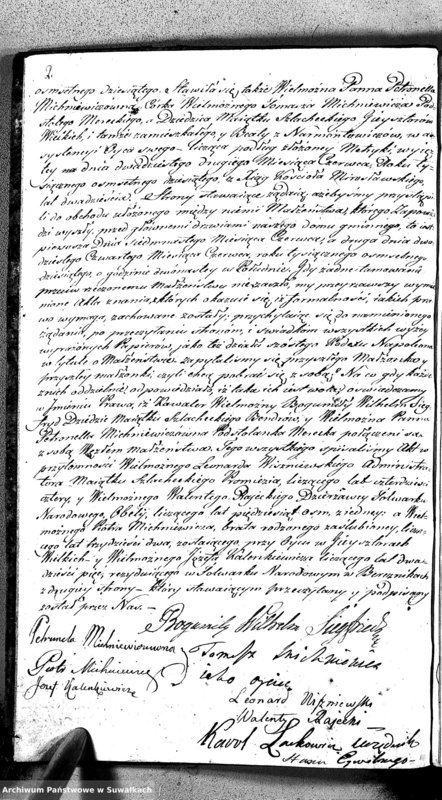 2.
osmsetnego dziesiątego. Stawiła się także Wielmożna Panna Petronella
Michniewiczówna, Córka Wielmożnego Tomasza Michniewicza Pod
Stolego Mereckiego, Dziedzica Maiątku Szlacheckiego Giżysztorów
Wielkich, i tamże zamieszkałego, y Beaty z Narmontowiczów, w a-
systencyi Oyca swego liczącą podług złożoney Metryki, wyię
tey na dniu dwudziestego drugiego Miesiąca Czerwca, Roku ty-
siącznego osmsetnego dziesiątego, z Xiąg Kościoła Mirosławskiego,
lat dwadzieścia. Strony stawaiące żądaią ażebyśmy przystąpi
li do obchodu ułożonego między niemi Małżeństwa, którego Zapowie
dzi wyszły przed głównemi drzwiami naszego domu gminnego, to iest
pierwsza dnia siedmnastego Miesiąca Czerwca, a druga dnia dwu
dziestego Czwartego Miesiąca Czerwca, roku tysiącznego osmsetnego
dziesiątego, o godzinie dwunastey w Południe. Gdy żadne tamowanie
przeciw rzeczonemu Małżeństwu nie zaszło, my przeyrzawszy wymie
nione Akta znania, z których okazuie się iż formalności, iakich pra
wo wymaga, zachowane zostały; przychylaiąc się do namienionego
żądania, po przeczytaniu stronom, i świadkom wszystkich wyżey
wyrażonych Papierów, iako też działu szóstego Kodexu Napoleona
w tytule o Małżeństwie; zapytaliśmy się przyszłego Małżonka y
przyszłey małżonki, czyli chcą pobrać się z sobą? Na co gdy każde
z nich oddzielnie odpowiedziało, iż taka ich iest wola; oświadczamy
w Imieniu Prawa, iż Kawaler Wielmożny Bogumił Wilhelm Sieg
fryd Dziedzic Maiątku Szlacheckiego Bendrów, y Wielmożna Panna
Petronella Michniewiczówna Podstolanka Merecka połączeni są
z sobą Węzłem małżeństwa. Tego wszystkiego spisaliśmy Akt w
przytomności Wielmożnego Leonarda Wiszniewskiego Administra
tora Maiątku Szlacheckiego Kromiezia, liczącego lat czterdzieści
cztery, y Wielmożnego Walentego Raieckiego Dzierżawcy Folwarku
Narodowego Obelii, liczącego lat pięćdziesiąt osm, z iedney: a Wiel
możnego Piotra Michniewicza, brata rodzonego zaślubioney, liczą-
cego lat trzydzieści dwa, zostaiącego przy Oycu w Giżysztorach
Wielkich y Wielmożnego Józefa Kalenkiewicza liczącego lat dwa
dzieścia pięć, rezyduiącego w Folwarku Narodowym w Bereznikach
z drugiey strony. który Stawaiącym przeczytany y podpisany
został przez Nas
Bogumil Wilhelm Siegfried
Petronela Michniewiczowna
Tomasz Michniewicz
iako oyciec
Piotr Michniewicz
Jozef Kalenkiewicz
Leonard Wiszniewski
Walenty Raiecki
Karol Lachowicz Urzędnik
Stanu Cywilnego
Archiwum Państwowe w Suwałkach